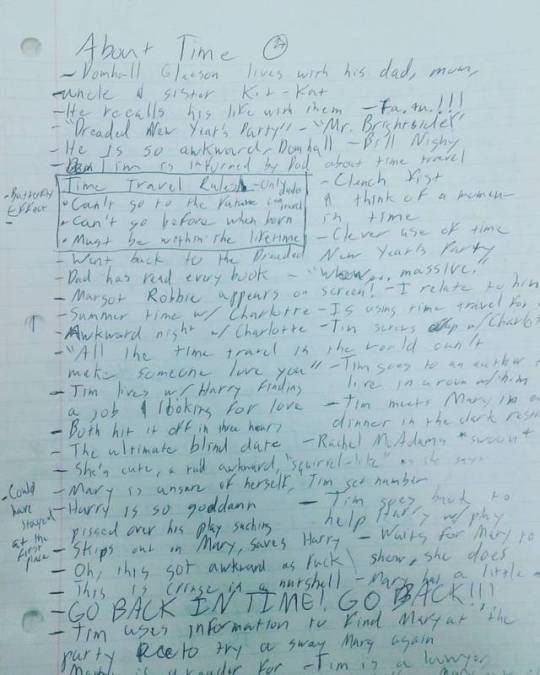 About Time
- Domhall Gleeson lives with his dad, mom,
uncle & sister Kit-Kat
- He recalls his life with them
- "Dreaded New Year's Party" - "Mr. Brightside"
- He is so awkward, Domhall - Bill Nighy
- Tim is informed by Dad about time travel
Time Travel Rules - Only dudes travel
• Can't go to the future
• Can't go before when born
• Must be within the lifetime
- Clench fist
& think of a momen
in time
- Clever use of time
- Butterfly
Effect
-
- Went back to the Dreaded New Year's Party
- Dad has read every book - massive."
- Margot Robbie appears on screen! - I relate to him
- Summer time w/ Charlotte - Is using time travel for
Awkward night w/ Charlotte - Tim screws up w/ Charlot
- "All the time travel in the world can't
make someone love you" - Tim goes to an author t
- Tim lives w/ Harry finding live in a room w/ him
a job & looking for love - Tim meets Mary in a
- Both hit it off in three hours dinner in the dark res
- The ultimate blind date - Rachel McAdams *swoon*
- She's cute, a tad awkward, "squirrel-like" as she says
- Mary is unsure of herself, Tim get number
- Harry is so goddamn - Tim goes back to
pissed over his play sucking help Harry w/ play
- Could
have
stayed
at the
first
place
- Skips out on Mary, saves Harry - Waits for Mary to
- Oh, this got awkward as fuck show, she does
- This is cringe in a nutshell - Mary has a little
- GO BACK IN TIME! GO BACK!!!
- Tim uses information to find Mary at the
party to try & sway Mary again
Mary is a reader for - Tim is a lawyer